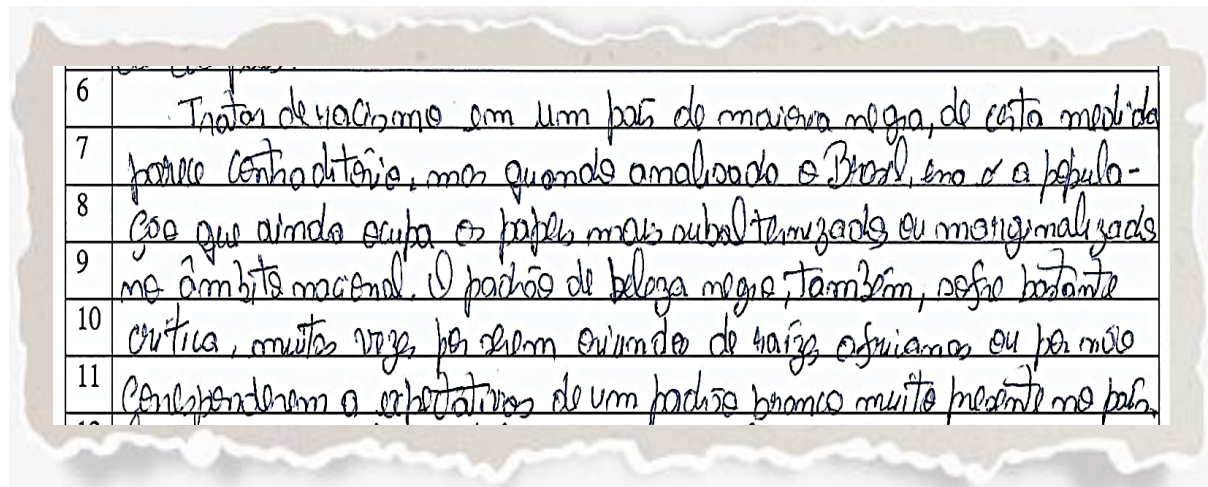 6 Tratar de racismo em um país de maioria negra, de certa medida
7 parece contraditório, mas quando analisado o Brasil, essa é a popula-
8 ção que ainda ocupa os papéis mais subalternizados ou marginalizados
9 no âmbito nacional. O padrão de beleza negro, também, sofre bastante
10 crítica, muitas vezes por serem oriundos de raízes africanas ou por não
11 corresponderem a expectativas de um padrão branco muito presente no país.